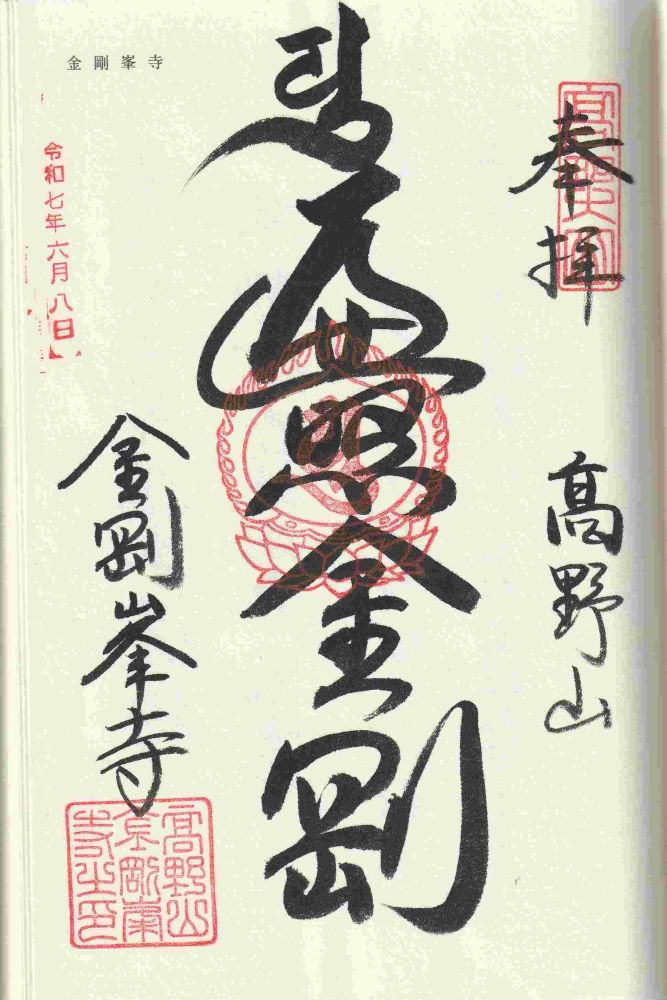 奉拝
高野山
遍照金剛
金剛峯寺
令和七年六月八日
金剛峯寺
高野山
金剛峯
寺之印